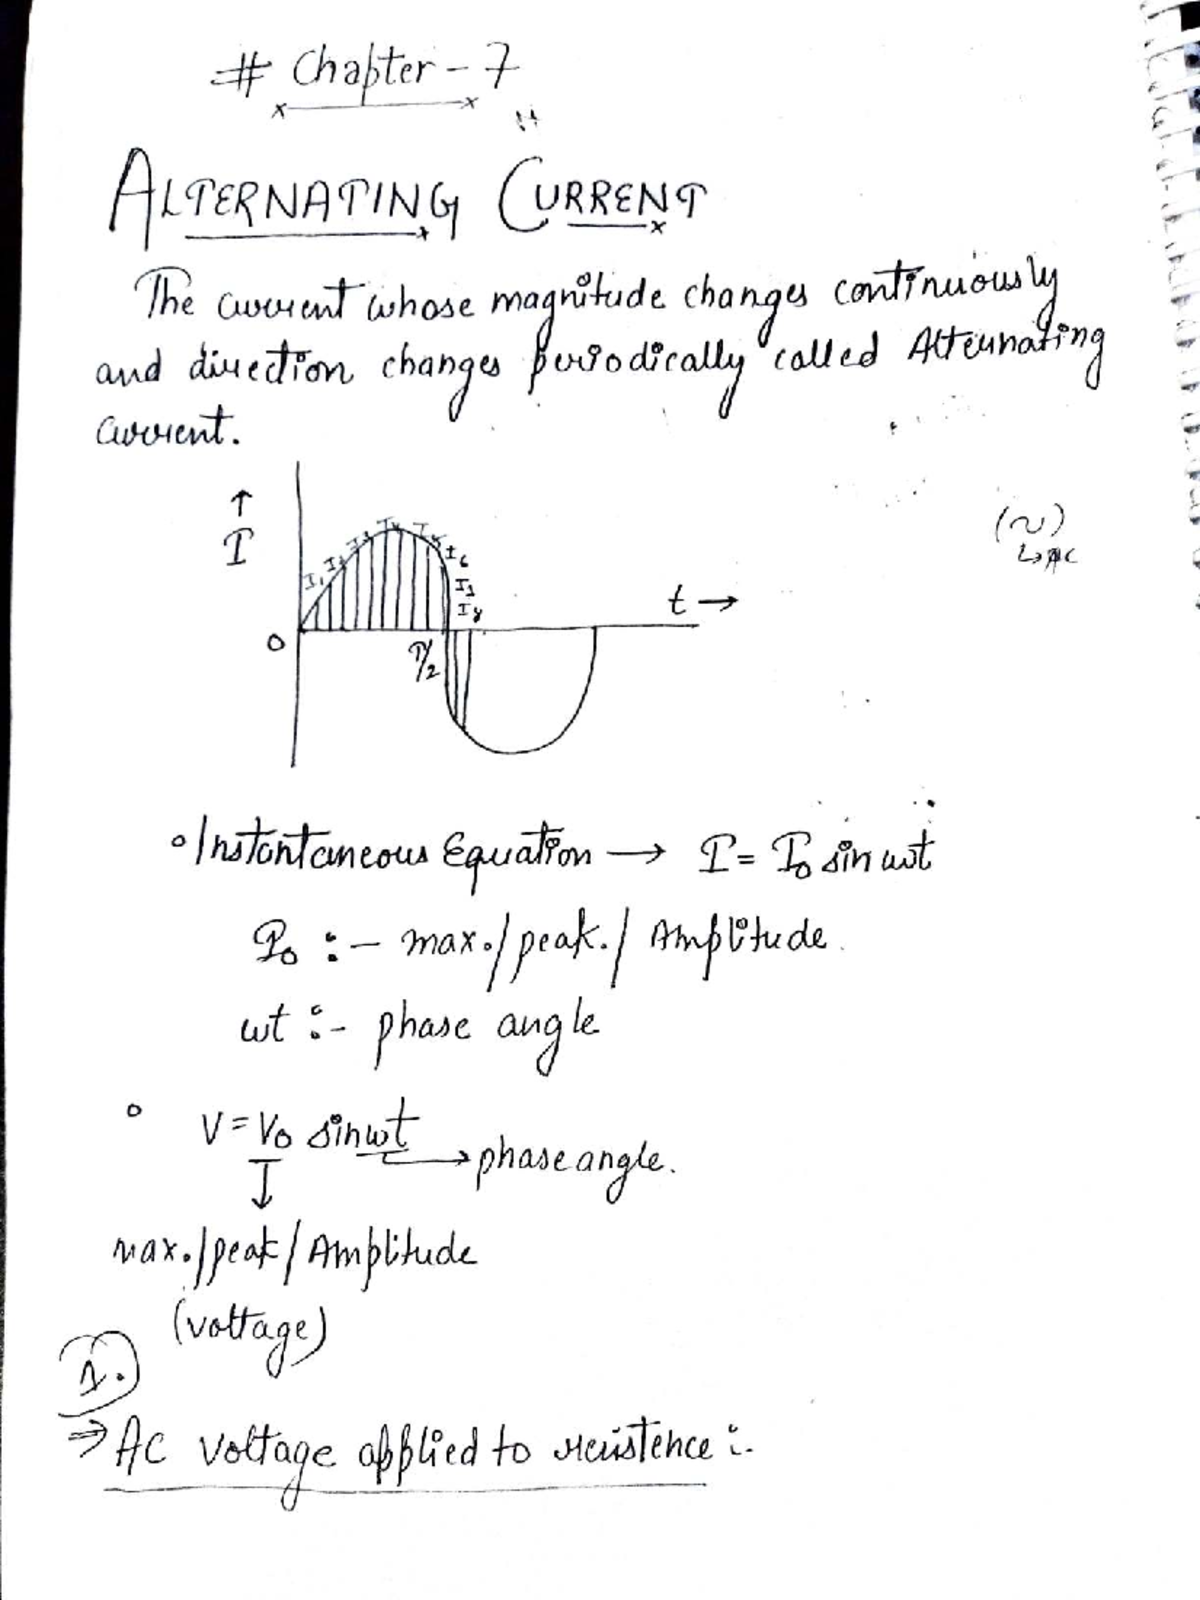 # Chapter - 7
ALTERNATING CURRENT
The current whose magnitude changes continuously
and direction changes periodically called Alternating
current.
↑
I
I₁ I₂ I₃ I₄ I₅ I₆
I₇
I₈
(~)
↳AC
t →
O
T/2
◦ Instantaneous Equation → I = I₀ sin wt
I₀ :- max./peak./Amplitude.
wt :- phase angle
◦ V = V₀ sinwt → phase angle.
↓
max./peak/Amplitude
(voltage)
1.
⇒ AC voltage applied to resistence :-